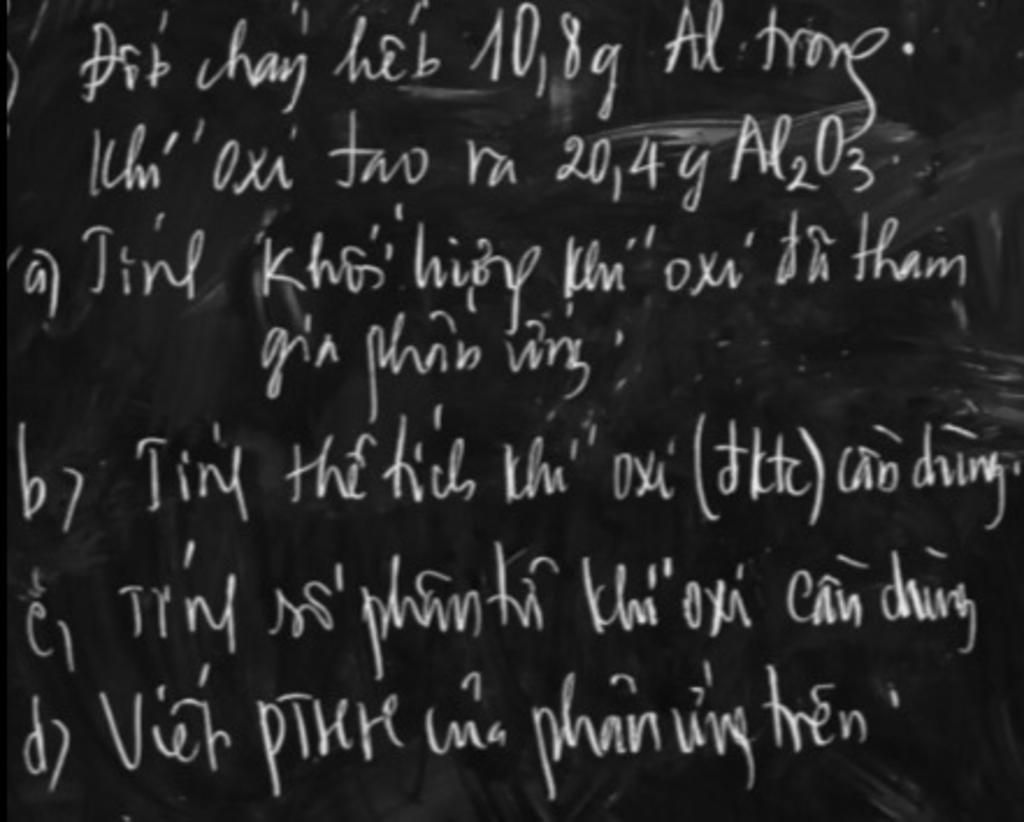 Đốt cháy hết 10,8g Al trong.
Khí oxi tạo ra 20,4g Al₂O₃.
a) Tính khối lượng khí oxi đã tham
gia phản ứng.
b) Tính thể tích khí oxi (đktc) cần dùng.
c) Tính số phân tử khí oxi cần dùng
d) Viết PTHH của phản ứng trên.